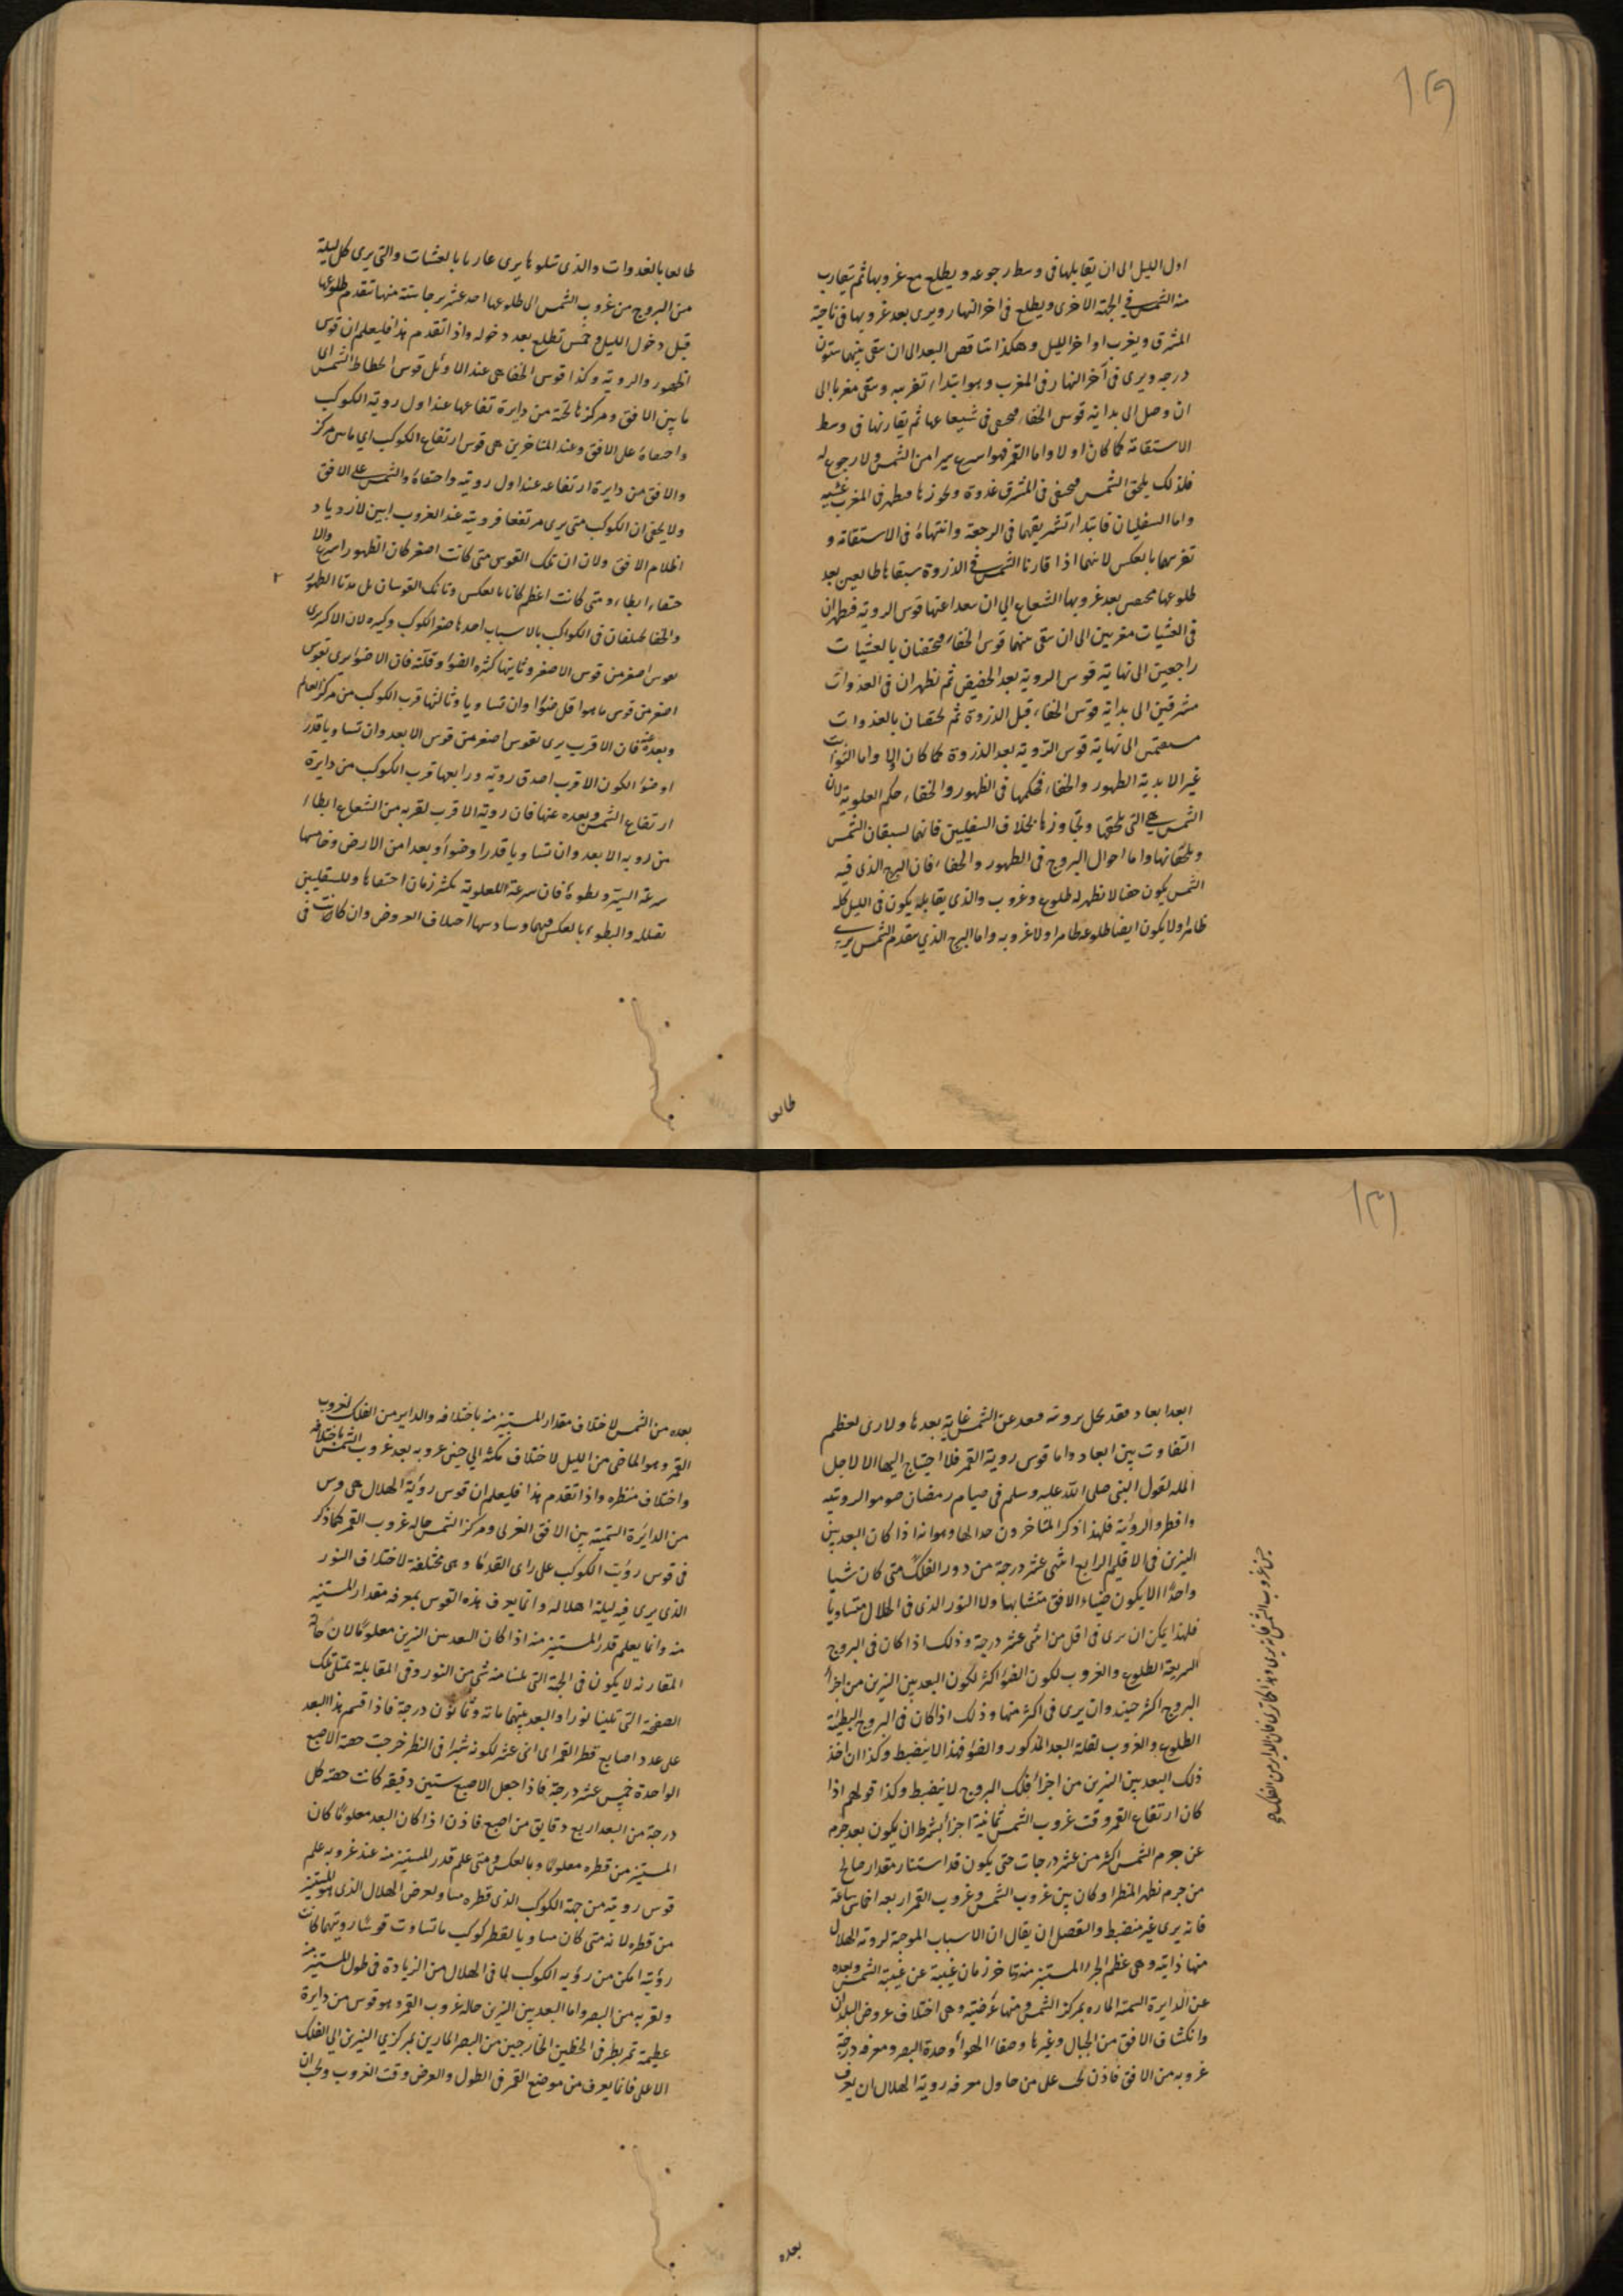 ١٢٩
اول الليل الى ان يقابلها فى وسط رجوعه ويطلع مع غروبها ثم يتقارب
منه الشمس فى الجهة الاخرى ويطلع فى اخر النهار ويرى بعد غروبها فى ناحية
المشرق ويغرب اواخر الليل وهكذا يتناقص البعد الى ان يبقى بينهما ستون
درجه ويرى فى آخر النهار فى المغرب وهو ابتداء تغريبه ويبقى مغربا الى
ان وصل الى بداية قوس الخفاء فيختفى فى شعاعها ثم يقارنها فى وسط
الاستقامة كما كان اولا واما القمر فهو اسرع سيرا من الشمس ولا رجوع له
فلذلك يلحق الشمس فيختفى فى المشرق غدوة ويجوزها فيظهر فى المغرب عشية
واما السفليان فابتداء تشريقهما فى الرجعة وانتهاؤه فى الاستقامة و
تغريبهما بالعكس لانهما اذا قارنا الشمس فى الذروة سبقاها طالعين بعد
طلوعها بعد غروبها الشعاع الى ان قوس الرويه فيظهران
فى العشيات مغربين الى ان يبقى بينهما قوس الخفاء فيختفيان بالعشيات
راجعين الى نهاية قوس الرويه بعد الحضيض ثم يظهران فى الغدوات
مشرقين الى بداية قوس الخفاء قبل الذروة ثم يختفيان بالغدوات
مستقيمين الى نهاية قوس الرويه بعد الذروة كما كان اولا واما الثوابت
غير الابدية الظهور والخفاء فحكمها فى الظهور والخفاء حكم العلوية لان
الشمس هى التى تلحقها وتجاوزها بخلاف السفليين فانهما يسبقان الشمس
ويلحقانها واما احوال البروج فى الظهور والخفاء فان البرج الذى فيه
الشمس يكون خفيا لا يظهر له طلوع وغروب والذى يقابله يكون فى الليل كله
ظاهرا ولا يكون ايضا طلوعه ظاهرا ولا غروبه واما البرج الذي يتقدم الشمس يرى
طالعا
طالعا بالغدوات والذى يتلوها يرى غاربا بالعشيات والتى يرى كل ليلة
من البروج من غروب الشمس الى طلوعها احد عشر برجا ستة منها تتقدم طلوعها
قبل دخول الليل وخمس تطلع بعد دخوله واذا تقدم هذا فليعلم ان قوس
الظهور والرويه وكذا قوس الخفا هى عند الاوئل قوس انحطاط الشمس اى
ما بين الافق ومركزها تحته من دايرة ارتفاعها عند اول روية الكوكب
واختفاؤه على الافق وعند المتاخرين هى قوس ارتفاع الكوكب اي ما بين مركزه
والافق من دايرة ارتفاعه عند اول رويته واختفاؤه والشمس على الافق
ولا يخفى ان الكوكب متى يرى مرتفعا فرويته عند الغروب ابين لازدياد
اظلام الافق ولان ان تلك القوس متى كانت اصغر كان الظهور اسرع والا
ختفاء ابطاء ومتى كانت اعظم كانا بالعكس وتانك القوسان بل مدتا الظهور
والخفا مختلفان فى الكواكب بالاسباب احدها صغر الكوكب وكبره لان الاكبر يرى
بقوس اصغر من قوس الاصغر وثانيتها كثرة الضوء وقلته فان الاضوا يرى بقوس
اصغر من قوس ما هو اقل ضوءا وان تساويا وثالثها قرب الكوكب من مركز العالم
وبعده عنه فان الاقرب يرى بقوس اصغر من قوس الابعد وان تساويا قدرا
اوضوءا لكون الاقرب اصدق روية ورابعها قرب الكوكب من دايرة
ارتفاع الشمس وبعده عنها فان روية الاقرب لقربه من الشعاع ابطاء
من روية الابعد وان تساويا قدرا وضوأ وبعدا من الارض وخامسها
سرعة السير وبطوءه فان سرعة العلوية يكثر زمان اختفاها وللسفليين
يقلله والبطوء بالعكس فيهما وسادسها اختلاف العروض وان كانت فى
١٣٠
ابعد ابعاد فقد بعد عن الشمس غاية بعدها ولا لعظم
التفاوت بين ابعاد واما قوس روية القمر فلا احتياج اليها الا لاجل
الملة لقول النبى صلى الله عليه وسلم فى صيام رمضان صوموا لرويته
وافطروا لرؤيته فلهذا ذكر المتاخرون حدا لها وهو انه اذا كان البعد بين
النيرين فى الاقليم الرابع اثنى عشر درجة من دور الفلك متى كان شيا
واحدا الا يكون ضياء الافق متشابها ولا النور الذى فى الهلال متساويا
فلهذا يمكن ان يرى فى اقل من اثنى عشر درجة وذلك اذا كان فى البروج
السريعة الطلوع والغروب لكون الضوء اكثر لكون البعد بين النيرين من اجزأ
البروج اكثر حينئذ وان يرى فى اكثر منها وذلك اذا كان فى البروج البطيئة
الطلوع والغروب لقلة البعد المذكور والضوء فهذا لا ينضبط وكذا ان اخذ
ذلك البعد بين النيرين من اجزأ فلك البروج لا ينضبط وكذا قولهم اذا
كان ارتفاع القمر وقت غروب الشمس ثمانية اجزأ بشرط ان يكون بعد جرمه
عن جرم الشمس اكثر من عشر درجات حتى يكون قد استنار مقدار صالح
من جرمه نظهر المنظر او كان بين غروب الشمس وغروب القمر اربعة اخماس ساعة
فانه يرى غير منضبط والتفصيل ان يقال ان الاسباب الموجبة لروية الهلال
منها ذاتية وهى عظم الجزء المستنير منه وتاخر زمان غيبته عن غيبة الشمس وبعده
عن الدايرة السمتة الماره بمركز الشمس ومنها عرضيه وهى اختلاف عروض البلدان
وانكشاف الافق من الجبال وغيرها وصفاء الهواء وحدة البصر ومعرفه درجة
غروبه من الافق فاذن يجب على من حاول معرفه روية الهلال ان يعرف
بعده
بعده من الشمس لاختلاف مقدار المستنير منه باختلافه والداير من الفلك لغروب
القمر وهو الماضى من الليل لاختلاف مكثه الي حين غروبه بعد غروب الشمس باختلافه
واختلاف منظره واذا تقدم هذا فليعلم ان قوس رؤية الهلال هى قوس
من الدايرة السمتية بين الافق الغربى ومركز الشمس حالة غروب القمر كما ذكر
فى قوس رؤية الكوكب على راى القدما وهى مختلفة لاختلاف النور
الذى يرى فيه ليلة اهلاله وانما يعرف هذه القوس بمعرفه مقدار المستنير
منه وانما يعلم قدر المستنير منه اذا كان البعد بين النيرين معلوما لان حالة
المقارنه لا يكون فى الجهة التى تلينا منه شى من النور وفى المقابلة تمتلى تلك
الصفحة التى تلينا نورا والبعد بينهما مائه وثمانون درجة فاذا قسم هذا البعد
على عدد اصابع قطر القمر اى اثنى عشر لكونه شبرا فى النظر خرجت حصة الاصبع
الواحدة خمس عشر درجة فاذا جعل الاصبع ستين دقيقه كانت حصة كل
درجة من البعد اربع دقايق من اصبع فاذن اذا كان البعد معلوما كان
المستنير من قطره معلوما وبالعكس ومتى علم قدر المستنير منه عند غروبه علم
قوس رويته من جهة الكوكب الذى قطره مساو لعرض الهلال الذى هو المستنير
من قطره لانه متى كان مساويا لقطر كوكب ما تساوت قوسا رويتهما كانت
رؤيته امكن من رؤيه الكوكب لما فى الهلال من الزيادة فى طول المستنير منه
ولقربه من البصر واما البعد بين النيرين حالة غروب القمر وهو قوس من دايرة
عظيمة تمر بطرفى الخطين الخارجين من البصر المارين بمركزي النيرين الى الفلك
الاعلى فانما يعرف من موضع القمر فى الطول والعرض وقت الغروب ويجب ان